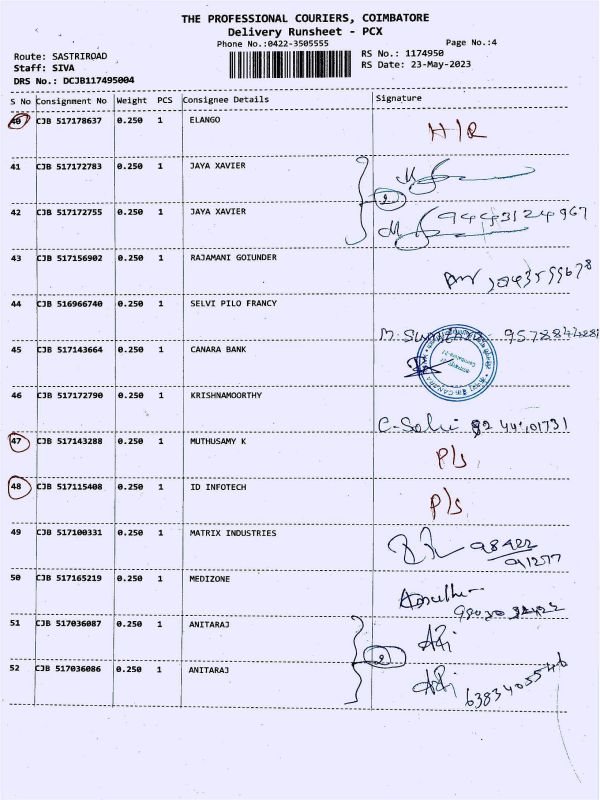 THE PROFESSIONAL COURIERS, COIMBATORE
Delivery Runsheet - PCX
Phone No.:0422-3505555
Page No.:4
Route: SASTRIROAD
RS No.: 1174950
Staff: SIVA
RS Date: 23-May-2023
DRS No.: DCJB117495004
S No Consignment No Weight PCS Consignee Details Signature
40 CJB 517178637 0.250 1 ELANGO
41 CJB 517172783 0.250 1 JAYA XAVIER
2
42 CJB 517172755 0.250 1 JAYA XAVIER 9443124967
43 CJB 517156902 0.250 1 RAJAMANI GOIUNDER
44 CJB 516966740 0.250 1 SELVI PILO FRANCY
45 CJB 517143664 0.250 1 CANARA BANK
46 CJB 517172790 0.250 1 KRISHNAMOORTHY
47 CJB 517143288 0.250 1 MUTHUSAMY K P/s
48 CJB 517115408 0.250 1 ID INFOTECH P/s
49 CJB 517100331 0.250 1 MATRIX INDUSTRIES 98422
91277
50 CJB 517165219 0.250 1 MEDIZONE
51 CJB 517036087 0.250 1 ANITARAJ
2
52 CJB 517036086 0.250 1 ANITARAJ 6383405546